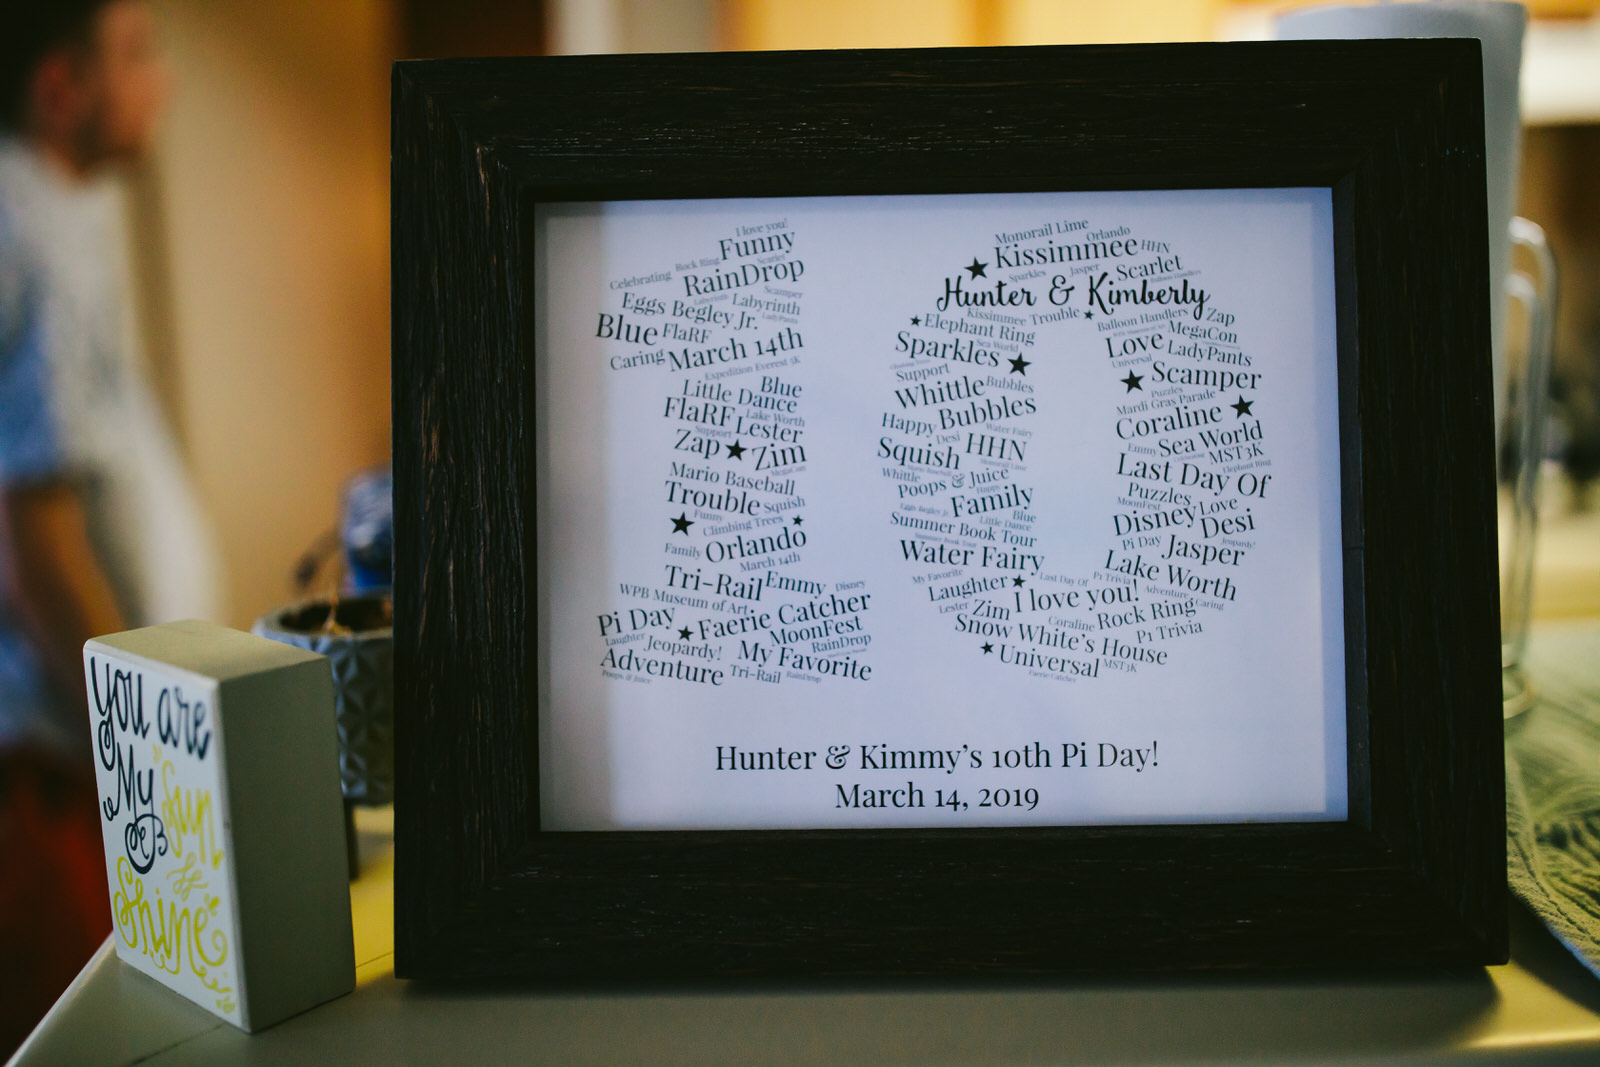 I love you!
Funny
Celebrating Rock Ring Scarlet
RainDrop
Scamper
Eggs Begley Jr. Labyrinth Labyrinth
LadyPants
Blue FlaRF
Caring March 14th
Expedition Everest 5K
Little Dance Blue
FlaRF Lake Worth
Lester
Support
Zap ★ Zim
MegaCon
Mario Baseball
Trouble Squish
Funny
★ Climbing Trees ★
Family Orlando
March 14th
Tri-Rail Emmy Disney
WPB Museum of Art
Pi Day ★ Faerie Catcher
Laughter Jeopardy! MoonFest
My Favorite RainDrop
Adventure Tri-Rail RainDrop
Poops & Juice
Monorail Lime
Orlando
★ Kissimmee HHN
Sparkles Jasper Scarlet
Balloon Handlers
Hunter & Kimberly
Kissimmee Trouble ★ Balloon Handlers Zap
★ Elephant Ring MegaCon
Sea World
Sparkles ★ Love LadyPants
Universal
Support ★ Scamper
Whittle Bubbles Puzzles
Mardi Gras Parade
Happy Bubbles Coraline ★
Water Fairy
Desi HHN Emmy Sea World
Squish Monorail Lime MST3K
Mario Baseball Elephant Ring
Whittle Last Day Of
Poops & Juice
Happy
Family Puzzles
MoonFest Love
Eggs Begley Jr. Blue
Little Dance Disney Desi
Summer Book Tour
Summer Book Tour Pi Day Jasper Jeopardy!
Water Fairy Lake Worth
My Favorite Last Day Of P1 Trivia
Laughter ★ Adventure Caring
Lester Zim I love you! Rock Ring
Coraline
Snow White's House P1 Trivia
★ Universal MST3K
Faerie Catcher
Hunter & Kimmy's 10th Pi Day!
March 14, 2019
you are
My
Sun
Shine